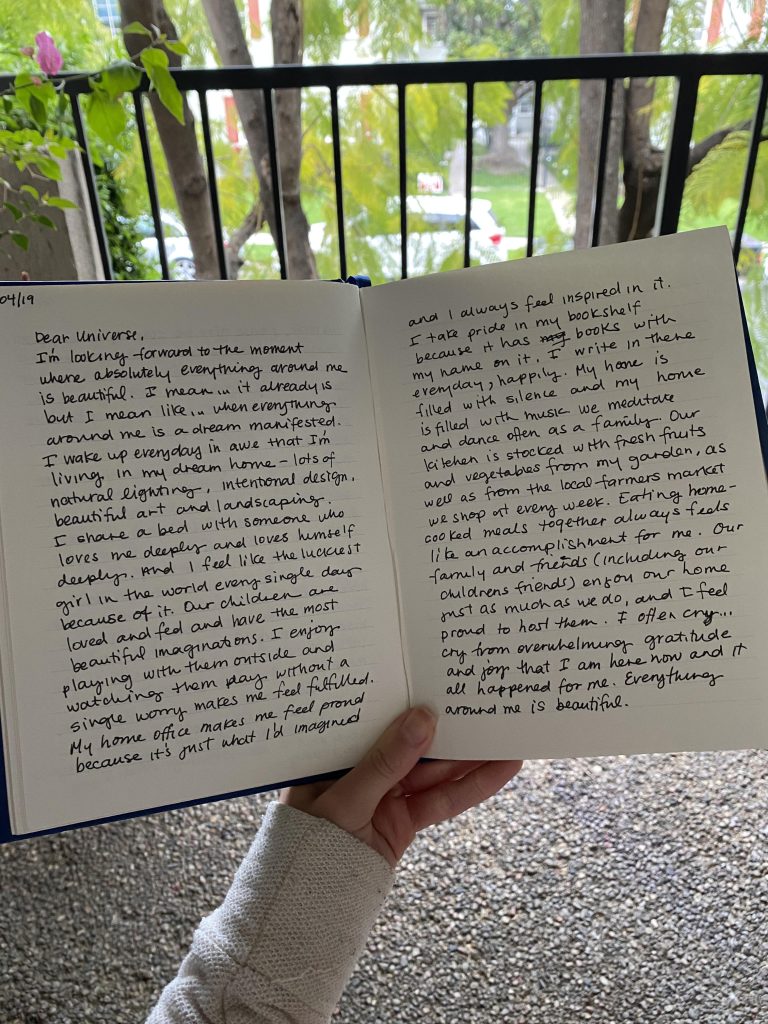 04/19
Dear Universe,
I'm looking forward to the moment
where absolutely everything around me
is beautiful. I mean... it already is
but I mean like... when everything
around me is a dream manifested.
I wake up everyday in awe that I'm
living in my dream home - lots of
natural lighting, intentional design,
beautiful art and landscaping.
I share a bed with someone who
loves me deeply and loves himself
deeply. And I feel like the luckiest
girl in the world every single day
because of it. Our children are
loved and fed and have the most
beautiful imaginations. I enjoy
playing with them outside and
watching them play without a
single worry makes me feel fulfilled.
My home office makes me feel proud
because it's just what I'd imagined
and I always feel inspired in it.
I take pride in my bookshelf
because it has my books with
my name on it. I write in there
everyday, happily. My home is
filled with silence and my home
is filled with music. We meditate
and dance often as a family. Our
kitchen is stocked with fresh fruits
and vegetables from my garden, as
well as from the local farmers market
we shop at every week. Eating home-
cooked meals together always feels
like an accomplishment for me. Our
family and friends (including our
childrens friends) enjoy our home
just as much as we do, and I feel
proud to host them. I often cry...
cry from overwhelming gratitude
and joy that I am here now and it
all happened for me. Everything
around me is beautiful.